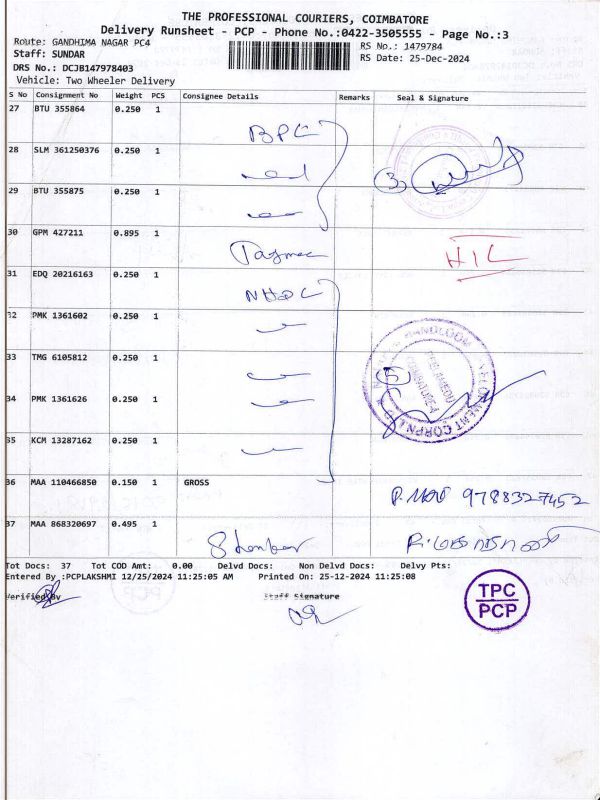 THE PROFESSIONAL COURIERS, COIMBATORE
Delivery Runsheet - PCP - Phone No.:0422-3505555 - Page No.:3
Route: GANDHIMA NAGAR PC4
RS No.: 1479784
Staff: SUNDAR
RS Date: 25-Dec-2024
DRS No.: DCJB147978403
Vehicle: Two Wheeler Delivery
S No Consignment No Weight PCS Consignee Details Remarks Seal & Signature
27 BTU 355864 0.250 1
BPC
28 SLM 361250376 0.250 1
3
29 BTU 355875 0.250 1
30 GPM 427211 0.895 1
HIL
31 EDQ 20216163 0.250 1
NHDC
32 PMK 1361602 0.250 1
33 TMG 6105812 0.250 1
5
34 PMK 1361626 0.250 1
35 KCM 13287162 0.250 1
36 MAA 110466850 0.150 1 GROSS
9788327452
37 MAA 868320697 0.495 1
Tot Docs: 37 Tot COD Amt: 0.00 Delvd Docs: Non Delvd Docs: Delvy Pts:
Entered By :PCPLAKSHMI 12/25/2024 11:25:05 AM Printed On: 25-12-2024 11:25:08
Verified By Staff Signature
TPC
PCP